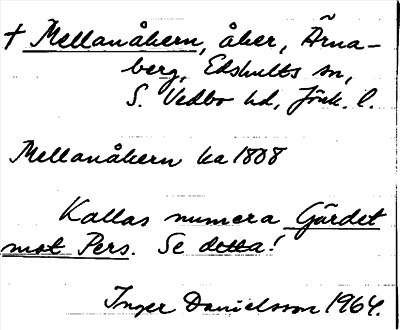 † Mellanåkern, åker, Ärna-
berg, Edshults sn,
S. Vedbo hd, Jönk. l.
Mellanåkern ka 1808
Kallas numera Gärdet
mot Pers. Se detta!
Inger Danielsson 1964.